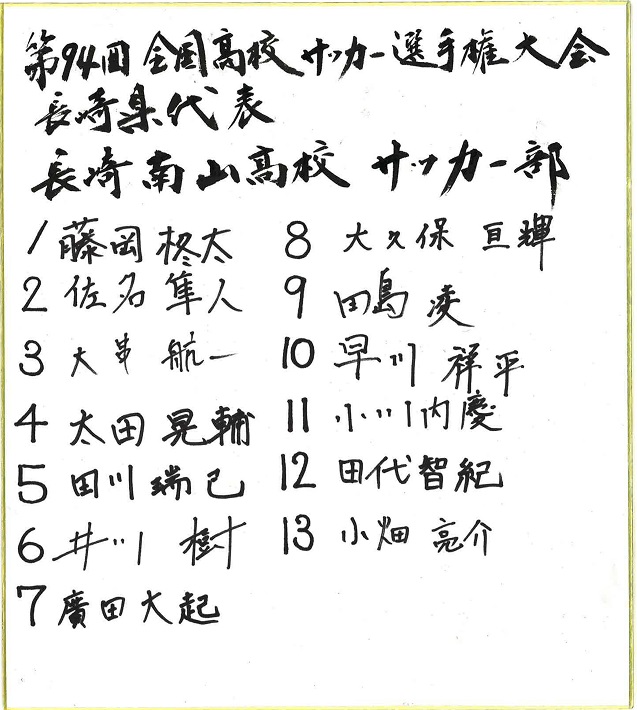 第94回 全国高校サッカー選手権大会
長崎県代表
長崎南山高校 サッカー部
1 藤岡柊太
2 佐名隼人
3 大串 航一
4 太田晃輔
5 田川瑞己
6 井川 樹
7 廣田大起
8 大久保 亘輝
9 田島 凌
10 早川 祥平
11 小川内慶
12 田代智紀
13 小畑 亮介